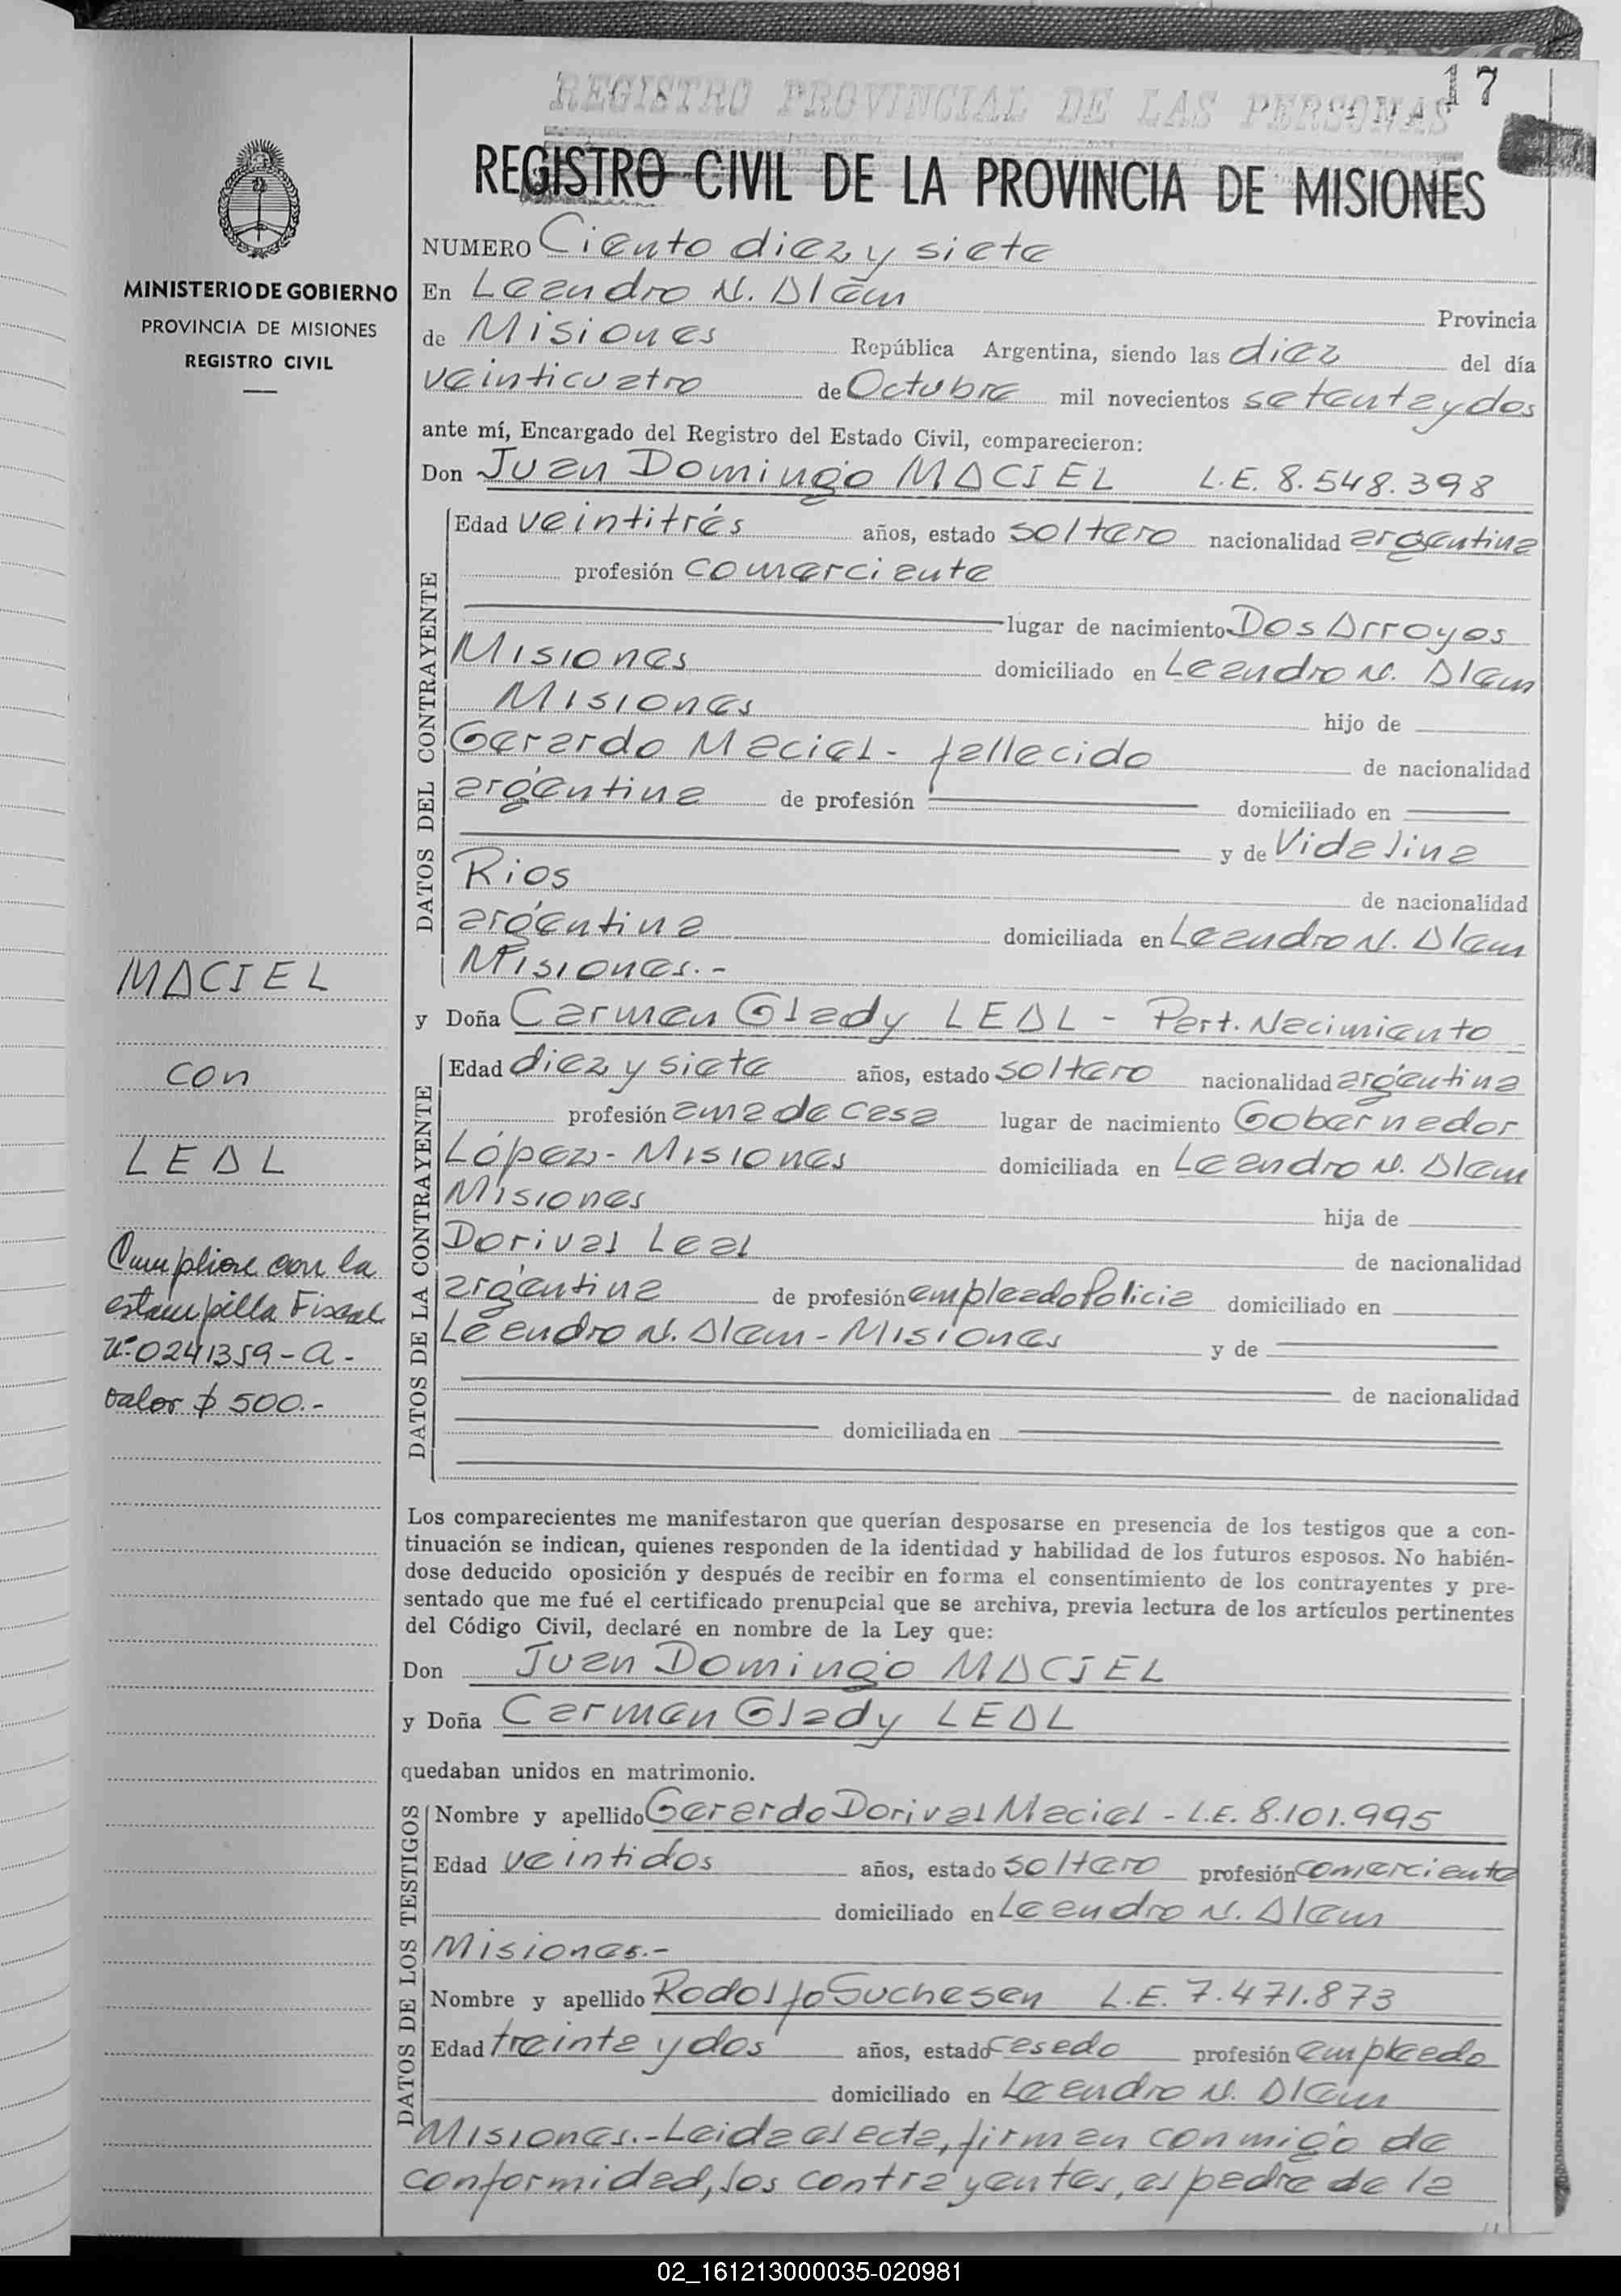 17
REGISTRO PROVINCIAL DE LAS PERSONAS
REGISTRO CIVIL DE LA PROVINCIA DE MISIONES
MINISTERIO DE GOBIERNO
PROVINCIA DE MISIONES
REGISTRO CIVIL
NUMERO Ciento diez y siete
En Leandro N. Alem
Provincia
de Misiones República Argentina, siendo las diez del día
veinticuatro de Octubre mil novecientos setenta y dos
ante mí, Encargado del Registro del Estado Civil, comparecieron:
Don Juan Domingo MACIEL L.E. 8.548.398
DATOS DEL CONTRAYENTE
Edad veintitrés años, estado soltero nacionalidad argentina
profesión comerciante
lugar de nacimiento Dos Arroyos
Misiones domiciliado en Leandro N. Alem
Misiones hijo de
Gerardo Maciel - fallecido de nacionalidad
argentina de profesión domiciliado en
y de Videlina
Rios de nacionalidad
argentina domiciliada en Leandro N. Alem
Misiones.-
y Doña Carmen Glady LEAL - Part. Nacimiento
DATOS DE LA CONTRAYENTE
Edad diez y siete años, estado soltero nacionalidad argentina
profesión ama de casa lugar de nacimiento Gobernador
López - Misiones domiciliada en Leandro N. Alem
Misiones hija de
Dorival Leal de nacionalidad
argentina de profesión empleado Policia domiciliado en
Leandro N. Alem - Misiones y de
de nacionalidad
domiciliada en
MACIEL
con
LEAL
Cumpliose con la
estampilla Fiscal
Nº 0241359-A-
valor $ 500.-
Los comparecientes me manifestaron que querían desposarse en presencia de los testigos que a con-
tinuación se indican, quienes responden de la identidad y habilidad de los futuros esposos. No habién-
dose deducido oposición y después de recibir en forma el consentimiento de los contrayentes y pre-
sentado que me fué el certificado prenupcial que se archiva, previa lectura de los artículos pertinentes
del Código Civil, declaré en nombre de la Ley que:
Don Juan Domingo MACIEL
y Doña Carmen Glady LEAL
quedaban unidos en matrimonio.
DATOS DE LOS TESTIGOS
Nombre y apellido Gerardo Dorival Maciel - L.E. 8.101.995
Edad veintidos años, estado soltero profesión comerciante
domiciliado en Leandro N. Alem
Misiones.-
Nombre y apellido Rodolfo Suchesen L.E. 7.471.873
Edad treinta y dos años, estado casado profesión empleado
domiciliado en Leandro N. Alem
Misiones.- Leida el acta, firman conmigo de
conformidad, los contrayentes, el padre de la
02_161213000035-020981